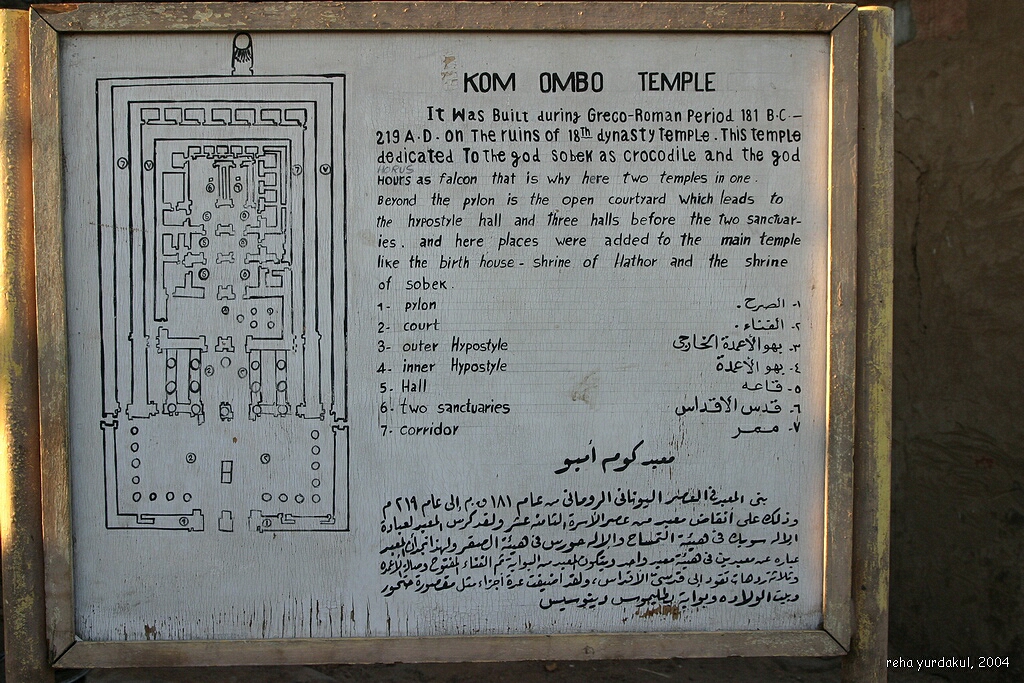 KOM OMBO TEMPLE
It Was Built during Greco-Roman Period 181 B.C-
219 A.D. on The ruins of 18Th dynasty temple. This temple
dedicated To the god sobek as crocodile and the god
HORUS
Hours as falcon that is why here two temples in one.
Beyond the pylon is the open courtyard which leads to
the hypostyle hall and three halls before the two sanctuar-
ies. and here places were added to the main temple
like the birth house - shrine of Hathor and the shrine
of sobek.
1- pylon ١- الصرح.
2- court ٢- الفناء.
3- outer Hypostyle ٣- بهو الأعمدة الخارجى
4- inner Hypostyle ٤- بهو الأعمدة
5- Hall ٥- قاعه
6- two sanctuaries ٦- قدس الاقداس
7- corridor ٧- ممر
معبد كوم أمبو
بنى المعبد فى العصر اليونانى الرومانى من عام ١٨١ ق.م إلى عام ٢١٩ م
وذلك على أنقاض معبد من عصر الأسرة الثامنة عشر ولقد كرس المعبد لعبادة
الإله سوبك فى هيئة التمساح والإله حورس فى هيئة الصقر ولهذا نجد أن المعبد
عباره عن معبدين فى هيئة معبد واحد ويتكون المعبد من البوابة ثم الفناء المفتوح وصالة الأعمدة
وثلاثة ردهات تقود إلى قدسى الأقداس، ولقد أضيفت عدة أجزاء مثل مقصورة حتحور
وبيت الولاده وبوابة بطليموس ديونيسيس
reha yurdakul, 2004